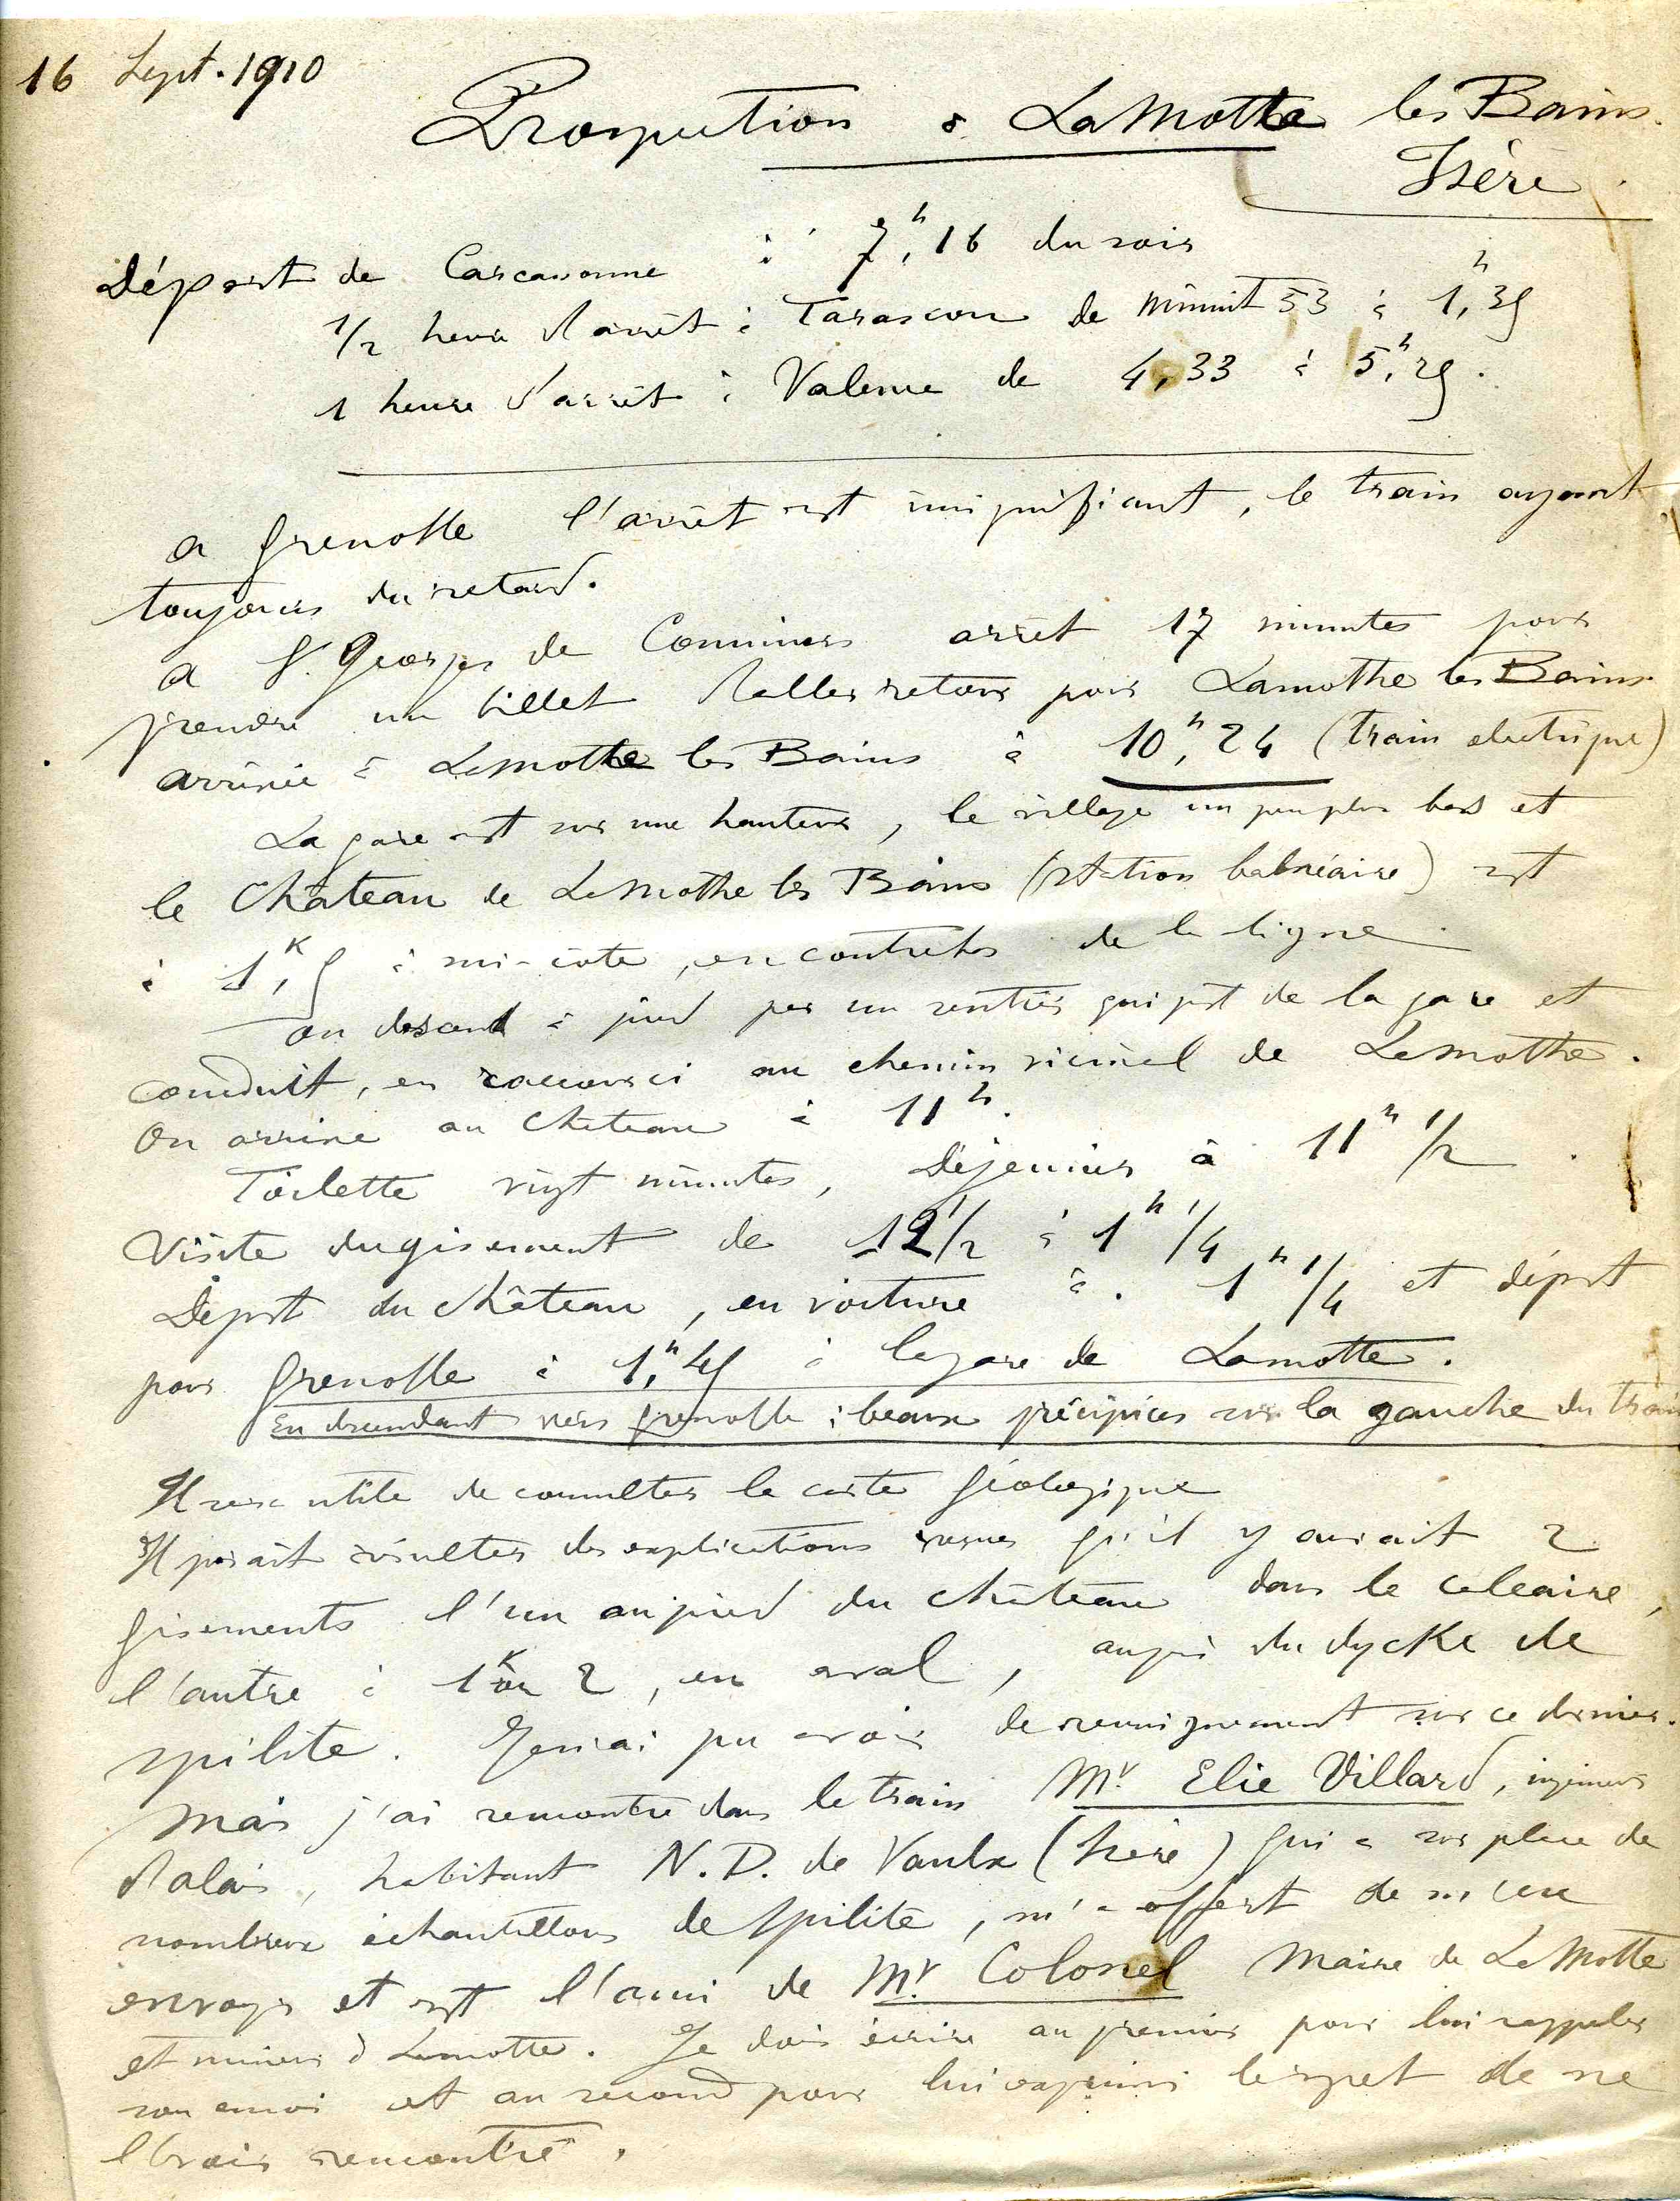 16 Sept. 1910
Prospection à LaMothe les Bains.
Isère.
Départ de Carcassonne à 7,h16 du soir
1/2 heure d'arrêt à Tarascon de minuit 53 à 1,h
1 heure d'arrêt à Valence de 4,33 à 5,h
a Grenoble l'arrêt est insignifiant, le train ayant
toujours du retard.
a St. Georges de Commiers arrêt 17 minutes pour
prendre un billet d'aller retour pour Lamothe les Bains
arrivée à Lamothe les Bains à 10,h24 (train électrique)
La gare est sur une hauteur, le village un peu plus bas et
le Château de La Mothe les Bains (station balnéaire) est
à à mi-côte, en contrebas de la ligne.
on descend à pied par un sentier qui part de la gare et
conduit, en raccourci au chemin vicinal de Lamothe.
On arrive au Château à 11h.
Toilette vingt minutes, Déjeuner à 11h 1/2.
Visite du gisement de 12 1/2 à 1h 1/4
Départ du château, en voiture à 1h 1/4 et départ
pour Grenoble à à la gare de Lamotte.
En descendant vers Grenoble : beaux précipices sur la gauche du train
Il sera utile de consulter la carte géologique
Il paraît résulter des explications reçues qu'il y aurait 2
gisements l'un au pied du château dans le calcaire,
l'autre à 1K ou 2, en aval, auprès du dycke de
spilite. Je n'ai pu avoir de renseignement sur ce dernier.
Mais j'ai rencontré dans le train Mr. Elie Villard, ingénieur
d'Alais, habitant N.D. de Vaulx (Isère) qui a sur place de
nombreux échantillons de spilite, m'a offert de m'en
envoyer et est l'ami de Mr. Colonel Maire de LaMotte
et mineur à Lamotte. Je dois écrire au premier pour lui rappeler
son envoi et au second pour lui exprimer le regret de ne
l'avoir rencontré.